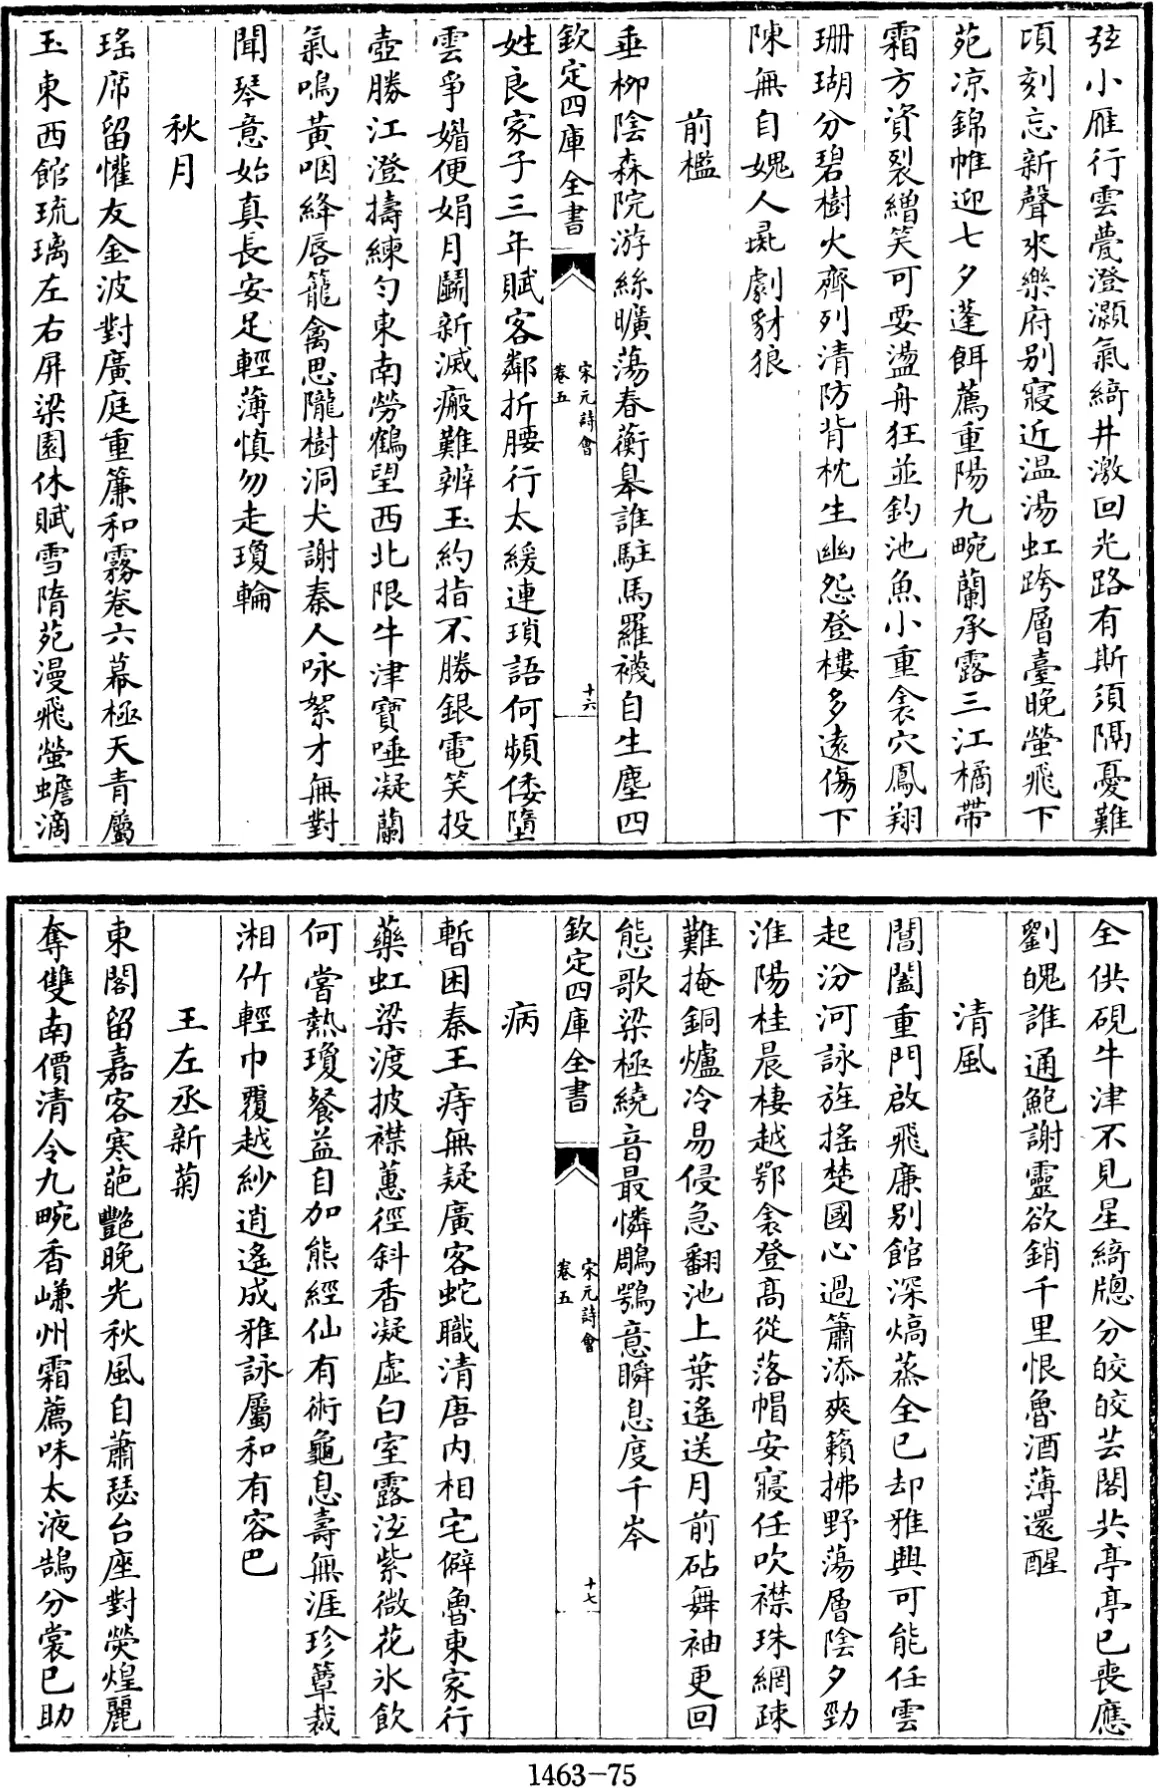 弦小雁行雲甍澄灝氣綺井激回光路有斯須隔憂難
頃刻忘新聲來樂府别寢近温湯虹跨層臺晚螢飛下
苑凉錦帷迎七夕蓬餌薦重陽九畹蘭承露三江橘帶
霜方資裂繒笑可要盪舟狂並釣池魚小重衾穴鳳翔
珊瑚分碧樹火齊列清防背枕生幽怨登樓多遠傷下
陳無自媿人彘劇豺狼
前檻
垂栁陰森院游絲曠蕩春蘅皋誰駐馬羅襪自生塵四
欽定四庫全書
宋元詩會
卷五
十六
姓良家子三年賦客鄰折腰行太緩連瑣語何頻倭墮
雲爭媚便娟月鬬新滅瘢難辨玉約指不勝銀電笑投
壺勝江澄擣練勻東南勞鶴望西北限牛津寶唾凝蘭
氣鳴黃咽絳唇籠禽思隴樹洞犬謝秦人咏絮才無對
聞琴意始真長安足輕薄慎勿走瓊輪
秋月
瑤席留懽友金波對廣庭重簾和霧卷六幕極天青屬
玉東西館琉璃左右屏梁園休賦雪隋苑漫飛螢蟾滴
全供硯牛津不見星綺牕分皎皎芸閣共亭亭已喪應
劉魄誰通鮑謝靈欲銷千里恨魯酒薄還醒
清風
閶闔重門啟飛廉别館深熇蒸全已却雅興可能任雲
起汾河詠旌摇楚國心過簫添爽籟拂野蕩層陰夕勁
淮陽桂晨棲越鄂衾登高從落帽安寢任吹襟珠網疎
難掩銅爐冷易侵急翻池上葉遙送月前砧舞袖更回
態歌梁極繞音最憐鵰鶚意瞬息度千岑
欽定四庫全書
宋元詩會
卷五
十七
病
暫困秦王痔無疑廣客蛇職清唐内相宅僻魯東家行
藥虹梁渡披襟蕙徑斜香凝虛白室露泣紫微花氷飲
何當熱瓊餐益自加熊經仙有術龜息壽無涯珍簟裁
湘竹輕巾覆越紗逍遙成雅詠屬和有容巴
王左丞新菊
東閣留嘉客寒葩艷晚光秋風自蕭瑟台座對熒煌麗
奪雙南價清令九畹香嵰州霜薦味太液鵠分裳已助
1463-75